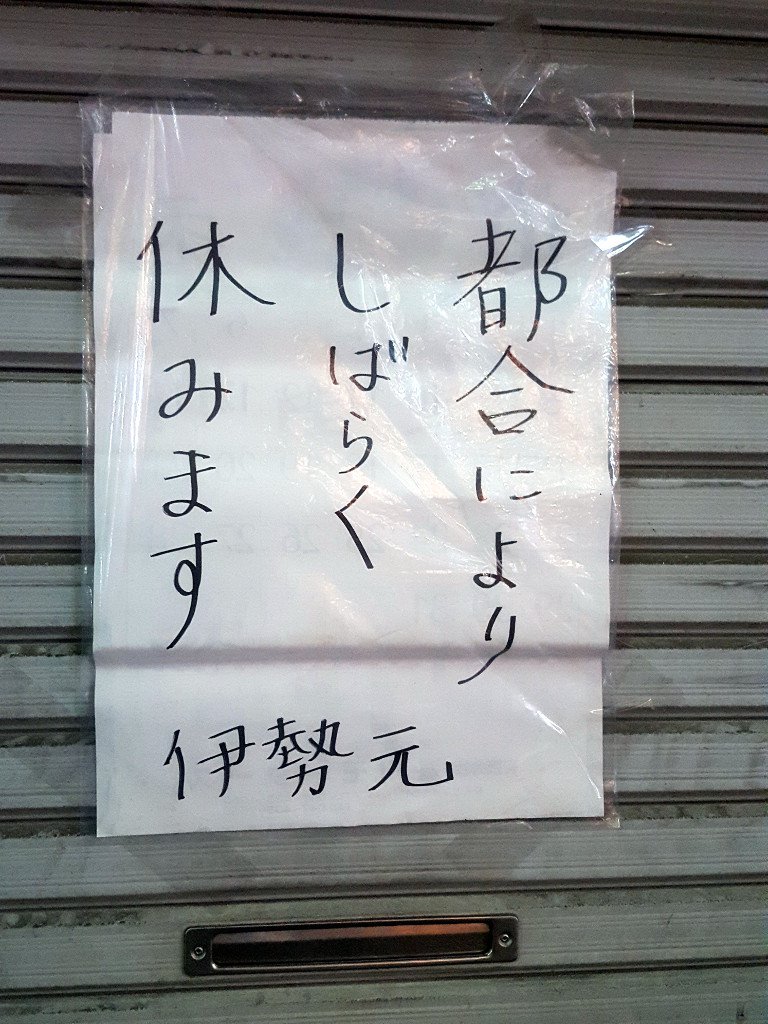 都合により
しばらく
休みます
伊勢元